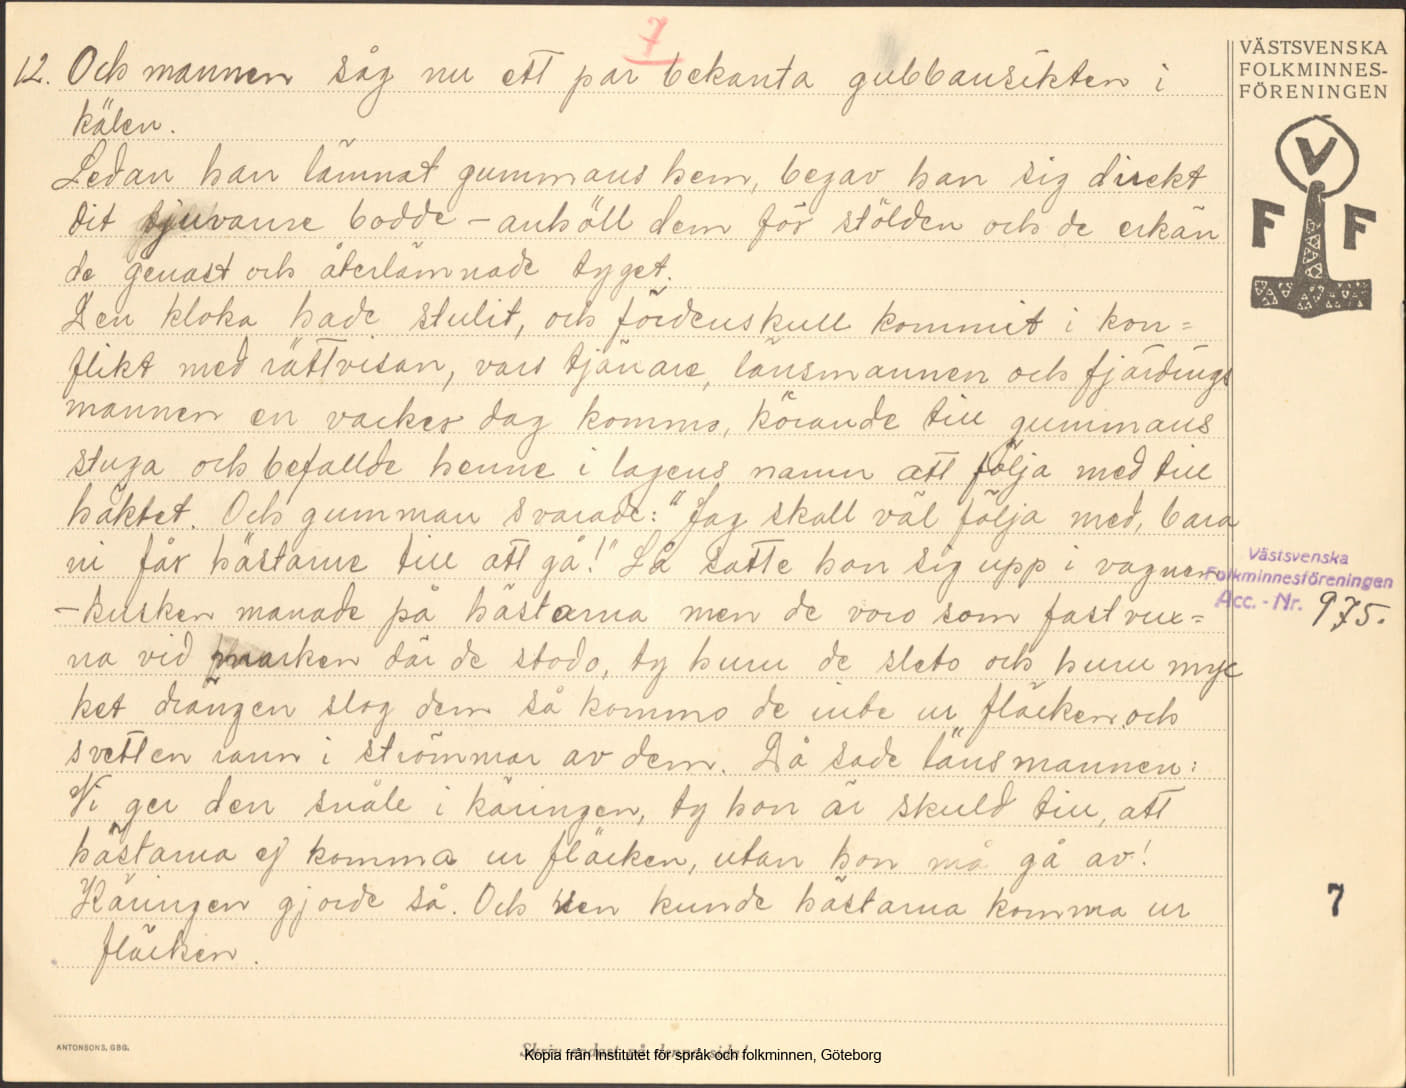 7
VÄSTSVENSKA
FOLKMINNES-
FÖRENINGEN
V
F F
12. Och mannen såg nu ett par bekanta gubbansikten i
kälen.
Sedan han lämnat gummans hem, begav han sig direkt
dit tjuvarne bodde – anhöll dem för stölden och de erkän
de genast och återlämnade tyget.
Den kloka hade stulit, och fördenskull kommit i kon=
flikt med rättvisan, vars tjänare, länsmannen och fjärdings
mannen en vacker dag kommo, körande till gummans
stuga och befallde henne i lagens namn att följa med till
häktet. Och gumman svarade: "Jag skall väl följa med, bara
ni får hästarne till att gå!" Så satte hon sig upp i vagnen
– kusken manade på hästarna men de voro som fastvux=
na vid marken där de stodo, ty huru de sleto och huru myc
ket drängen slog dem så kommo de inte ur fläcken, och
svetten rann i strömmar av dem. Då sade länsmannen:
Vi ger den snåle i käringen, ty hon är skuld till, att
hästarna ej komma ur fläcken, utan hon må gå av!
Käringen gjorde så. Och sen kunde hästarna komma ur
fläcken.
Västsvenska
Folkminnesföreningen
Acc. - Nr. 975.
7
ANTONSONS, GBG.
Skriv endast på denna sida!
Kopia från Institutet för språk och folkminnen, Göteborg